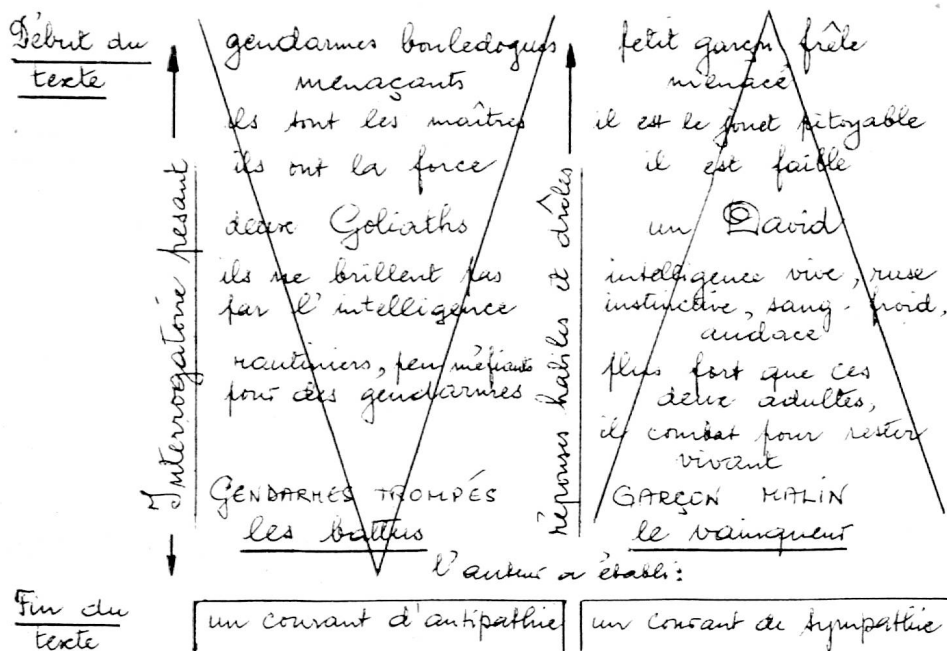 Début du
texte
Interrogatoire pesant
gendarmes bouledogues
menaçants
ils sont les maîtres
ils ont la force
deux Goliaths
ils ne brillent pas
par l'intelligence
routiniers, peu méfiants
pour des gendarmes
GENDARMES TROMPÉS
les battus
réponses habiles et drôles
petit garçon frêle
menacé
il est le jouet pitoyable
il est faible
un David
intelligence vive, ruse
instinctive, sang-froid,
audace
plus fort que ces
deux adultes,
il combat pour rester
vivant
GARÇON MALIN
le vainqueur
l'auteur a établi:
Fin du
texte
un courant d'antipathie
un courant de sympathie